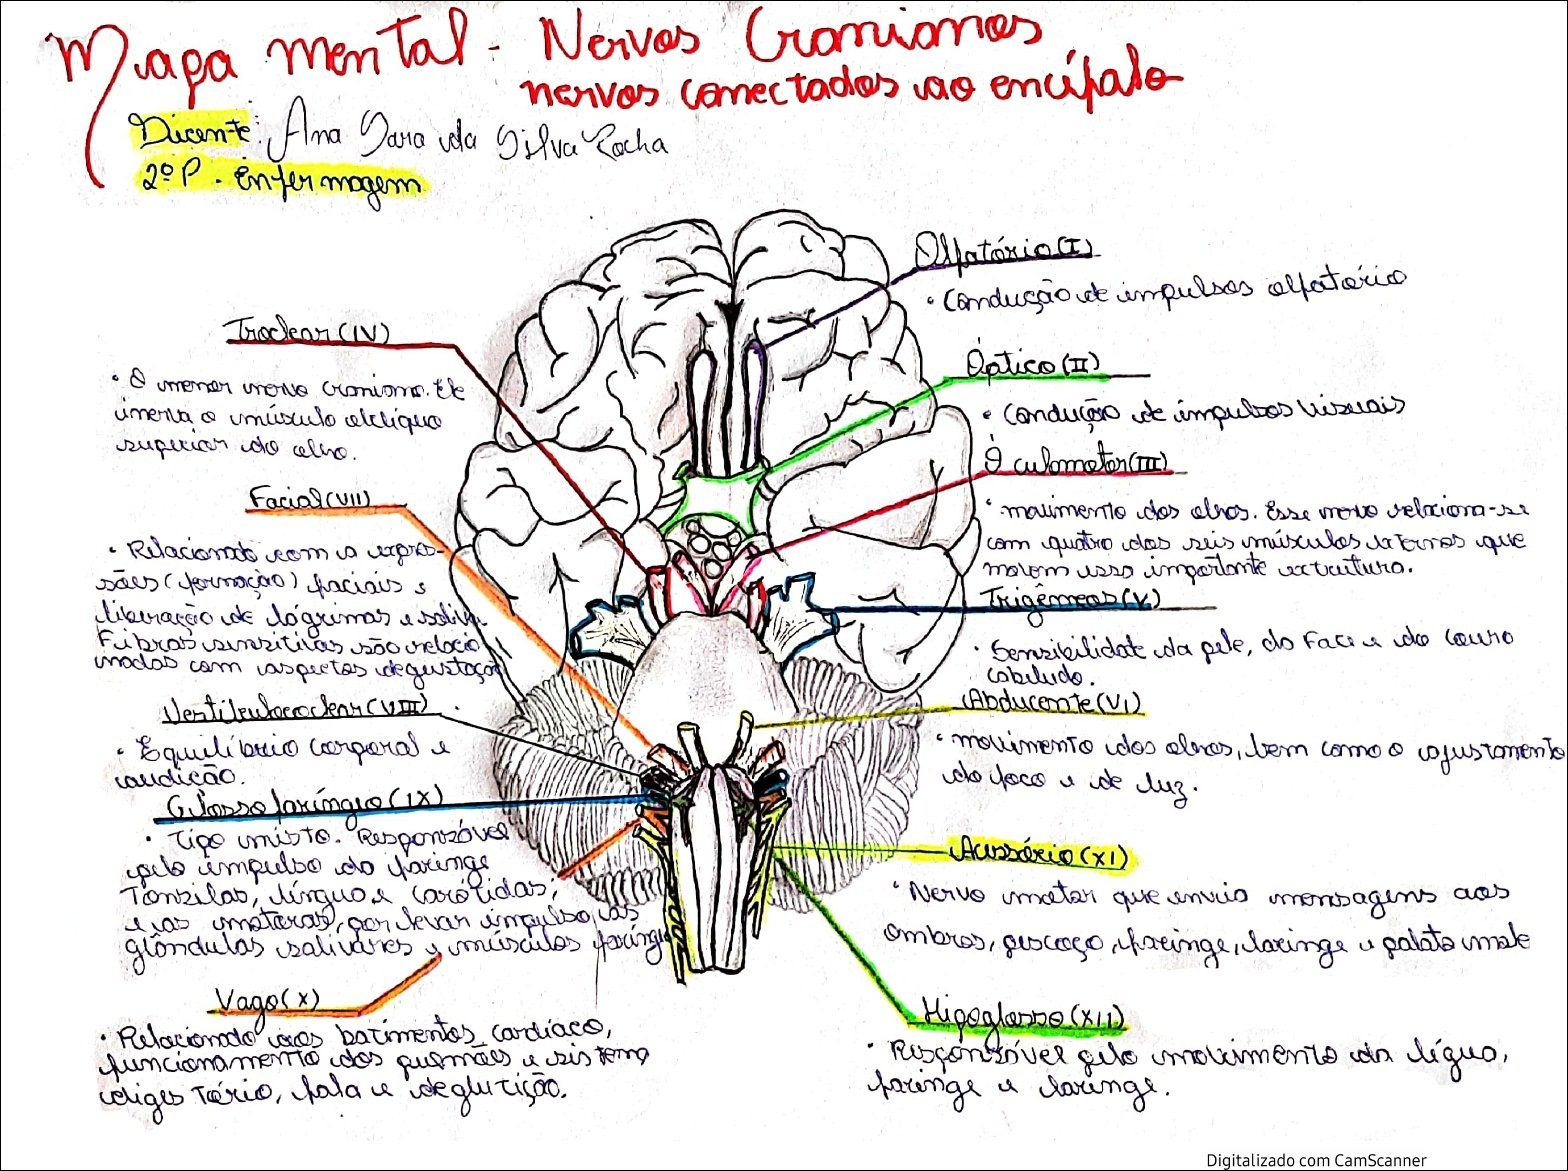 Mapa mental - Nervos Cranianos
nervos conectados ao encéfalo
Dicente: Ana Sara da Silva Rocha
2º P - Enfermagem
Olfatório (I)
• Condução de impulsos olfatório
Óptico (II)
• Condução de impulsos visuais
Óculomotor (III)
• movimento dos olhos. Esse nervo relaciona-se
com quatro dos seis músculos externos que
movem essa importante estrutura.
Trigêmeos (V)
• Sensibilidade da pele, da face e do couro
cabeludo.
Abducente (VI)
• movimento dos olhos, bem como o ajustamento
do foco e de luz.
Acessório (XI)
• Nervo motor que envia mensagens aos
ombros, pescoço, faringe, laringe e palato mole
Hipoglosso (XII)
• Responsável pelo movimento da lígua,
faringe e laringe.
Troclear (IV)
• O menor nervo craniano. Ele
inerva o músculo oblíquo
superior do olho.
Facial (VII)
• Relacionado com a expres-
sões (formação) faciais e
liberação de lágrimas e saliva.
Fibras sensitivas são relacio
nadas com aspectos degustação
Vestibulococlear (VIII)
• Equilíbrio corporal e
audição.
Glossofaríngio (IX)
• Tipo misto. Responsável
pelo impulso da faringe
Tonzilas, língua e carótidas;
e as motoras, por levar impulso as
glândulas salivares e músculos faríngi
Vago (X)
• Relacionado aos batimentos cardíaco,
funcionamento dos pulmões e sistema
digestório, fala e deglutição.
Digitalizado com CamScanner